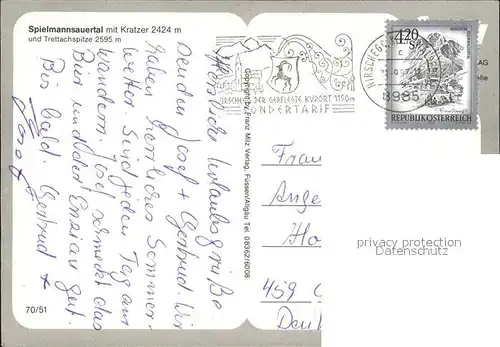 Spielmannsauertal mit Kratzer 2424 m
und Trettachspitze 2595 m
Herzliche Urlaubsgrüße
senden Josef + Gertrud. Wir
haben herrliches Sommer-
wetter. Sind jeden Tag am
wandern. Josef schmeckt das
Bier und der Enzian gut.
Bis bald. Gertrud +
Josef
70/51
Copyright by Franz Milz Verlag, Füssen/Allgäu Tel. 08362/6008
HIRSCHEGG, DER GEPFLEGTE KURORT 1150m
SONDERTARIF
HIRSCHEGG
8985
4.20
REPUBLIK ÖSTERREICH
AG
elle
Frau
Ange
Ho
459 C
Deu
privacy protection
Datenschutz